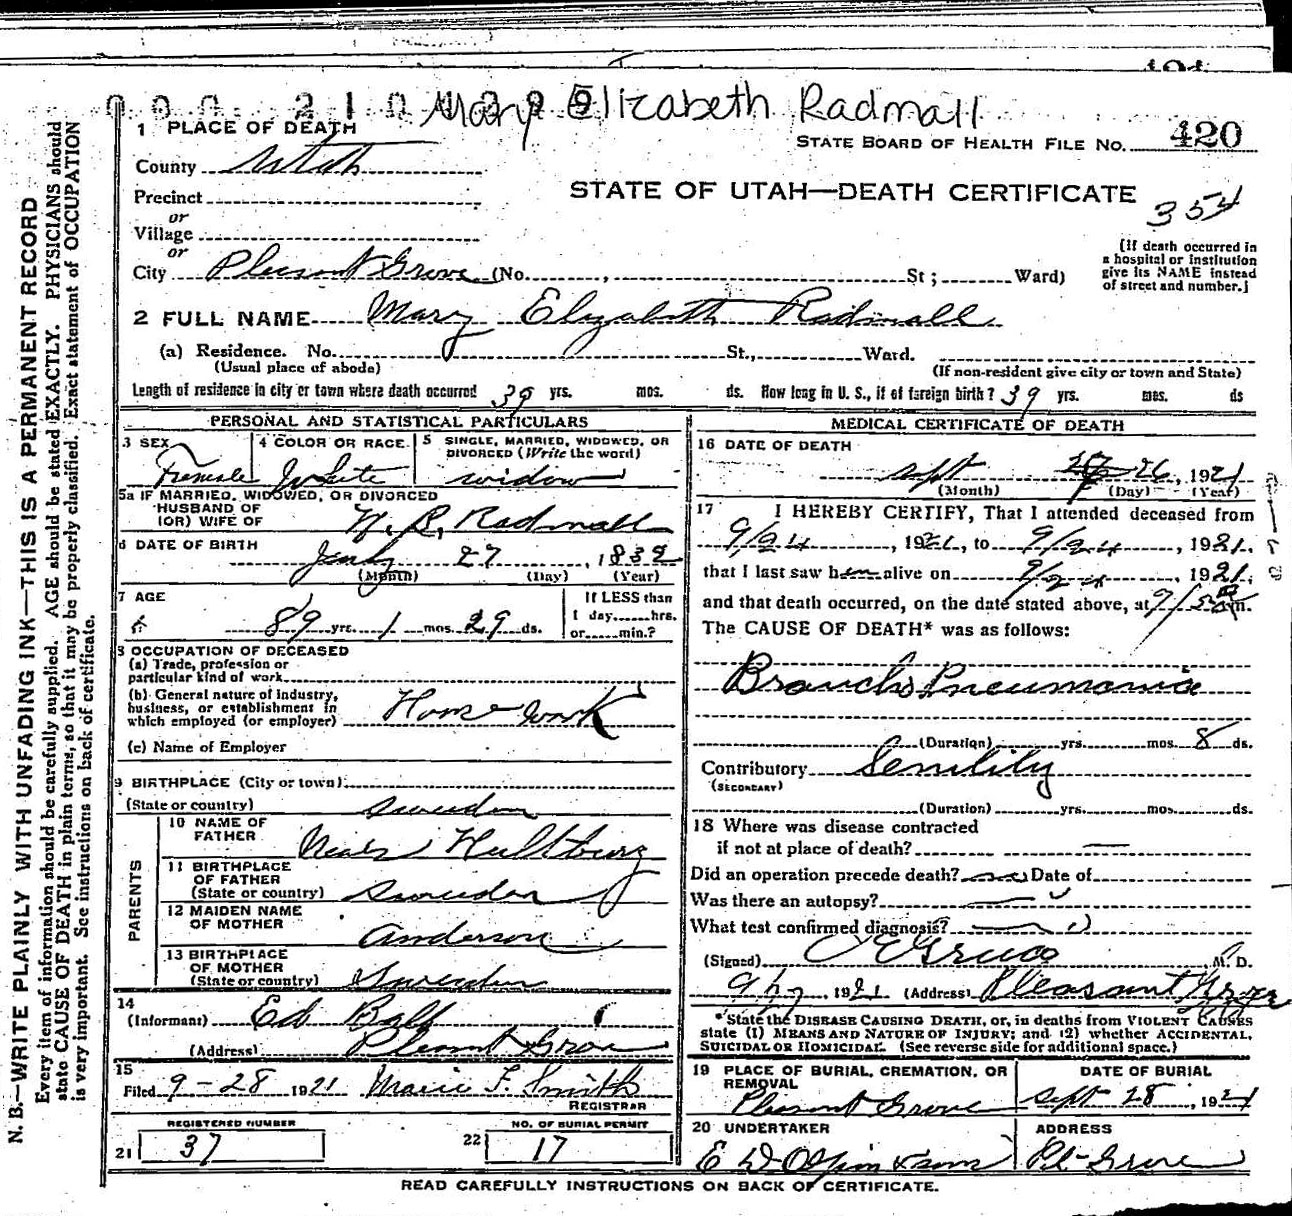 Mary Elizabeth Radmall
1 PLACE OF DEATH
STATE BOARD OF HEALTH FILE NO. 420
County Utah
STATE OF UTAH—DEATH CERTIFICATE
354
Precinct
or
Village
or
City Pleasant Grove (No. , St; Ward)
(If death occurred in
a hospital or institution
give its NAME instead
of street and number.)
2 FULL NAME Mary Elizabeth Radmall
(a) Residence. No. St., Ward.
(Usual place of abode)
(If non-resident give city or town and State)
Length of residence in city or town where death occurred 39 yrs. mos. ds. How long in U. S., if of foreign birth? 39 yrs. mos. ds
PERSONAL AND STATISTICAL PARTICULARS
3 SEX
4 COLOR OR RACE
5 SINGLE, MARRIED, WIDOWED, OR
DIVORCED (Write the word)
Female White widow
5a IF MARRIED, WIDOWED, OR DIVORCED
HUSBAND OF
(OR) WIFE OF
Radmall
6 DATE OF BIRTH
27, 1832
(Month) (Day) (Year)
7 AGE
89 yrs. 1 mos. 29 ds.
If LESS than
1 day......hrs.
or......min.?
8 OCCUPATION OF DECEASED
(a) Trade, profession or
particular kind of work
(b) General nature of industry,
business, or establishment in
which employed (or employer) House work
(c) Name of Employer
9 BIRTHPLACE (City or town)
(State or country) Sweden
PARENTS
10 NAME OF
FATHER
Hultburg
11 BIRTHPLACE
OF FATHER
(State or country) Sweden
12 MAIDEN NAME
OF MOTHER
Anderson
13 BIRTHPLACE
OF MOTHER
(State or country) Sweden
14
(Informant) Ed
(Address) Pleasant Grove
15
Filed 9-28 1921 Marie F. Smith
REGISTRAR
REGISTERED NUMBER
21 37
NO. OF BURIAL PERMIT
22 17
MEDICAL CERTIFICATE OF DEATH
16 DATE OF DEATH
Sept 26, 1921
(Month) (Day) (Year)
17 I HEREBY CERTIFY, That I attended deceased from
9/24, 1921, to 9/24, 1921,
that I last saw her alive on 9/24 1921,
and that death occurred, on the date stated above, at m.
The CAUSE OF DEATH* was as follows:
Broncho Pneumonia
(Duration) yrs. mos. 8 ds.
Contributory Senility
(SECONDARY)
(Duration) yrs. mos. ds.
18 Where was disease contracted
if not at place of death?
Did an operation precede death? no Date of
Was there an autopsy?
What test confirmed diagnosis?
(Signed) M. D.
1921 (Address) Pleasant Grove
*State the DISEASE CAUSING DEATH, or, in deaths from VIOLENT CAUSES
state (1) MEANS AND NATURE OF INJURY; and (2) whether ACCIDENTAL,
SUICIDAL OR HOMICIDAL. (See reverse side for additional space.)
19 PLACE OF BURIAL, CREMATION, OR
REMOVAL
Pleasant Grove
DATE OF BURIAL
Sept 28, 1921
20 UNDERTAKER
ADDRESS
Pl- Grove
READ CAREFULLY INSTRUCTIONS ON BACK OF CERTIFICATE.
N. B.—WRITE PLAINLY WITH UNFADING INK—THIS IS A PERMANENT RECORD
Every item of information should be carefully supplied. AGE should be stated EXACTLY. PHYSICIANS should
state CAUSE OF DEATH in plain terms, so that it may be properly classified. Exact statement of OCCUPATION
is very important. See instructions on back of certificate.